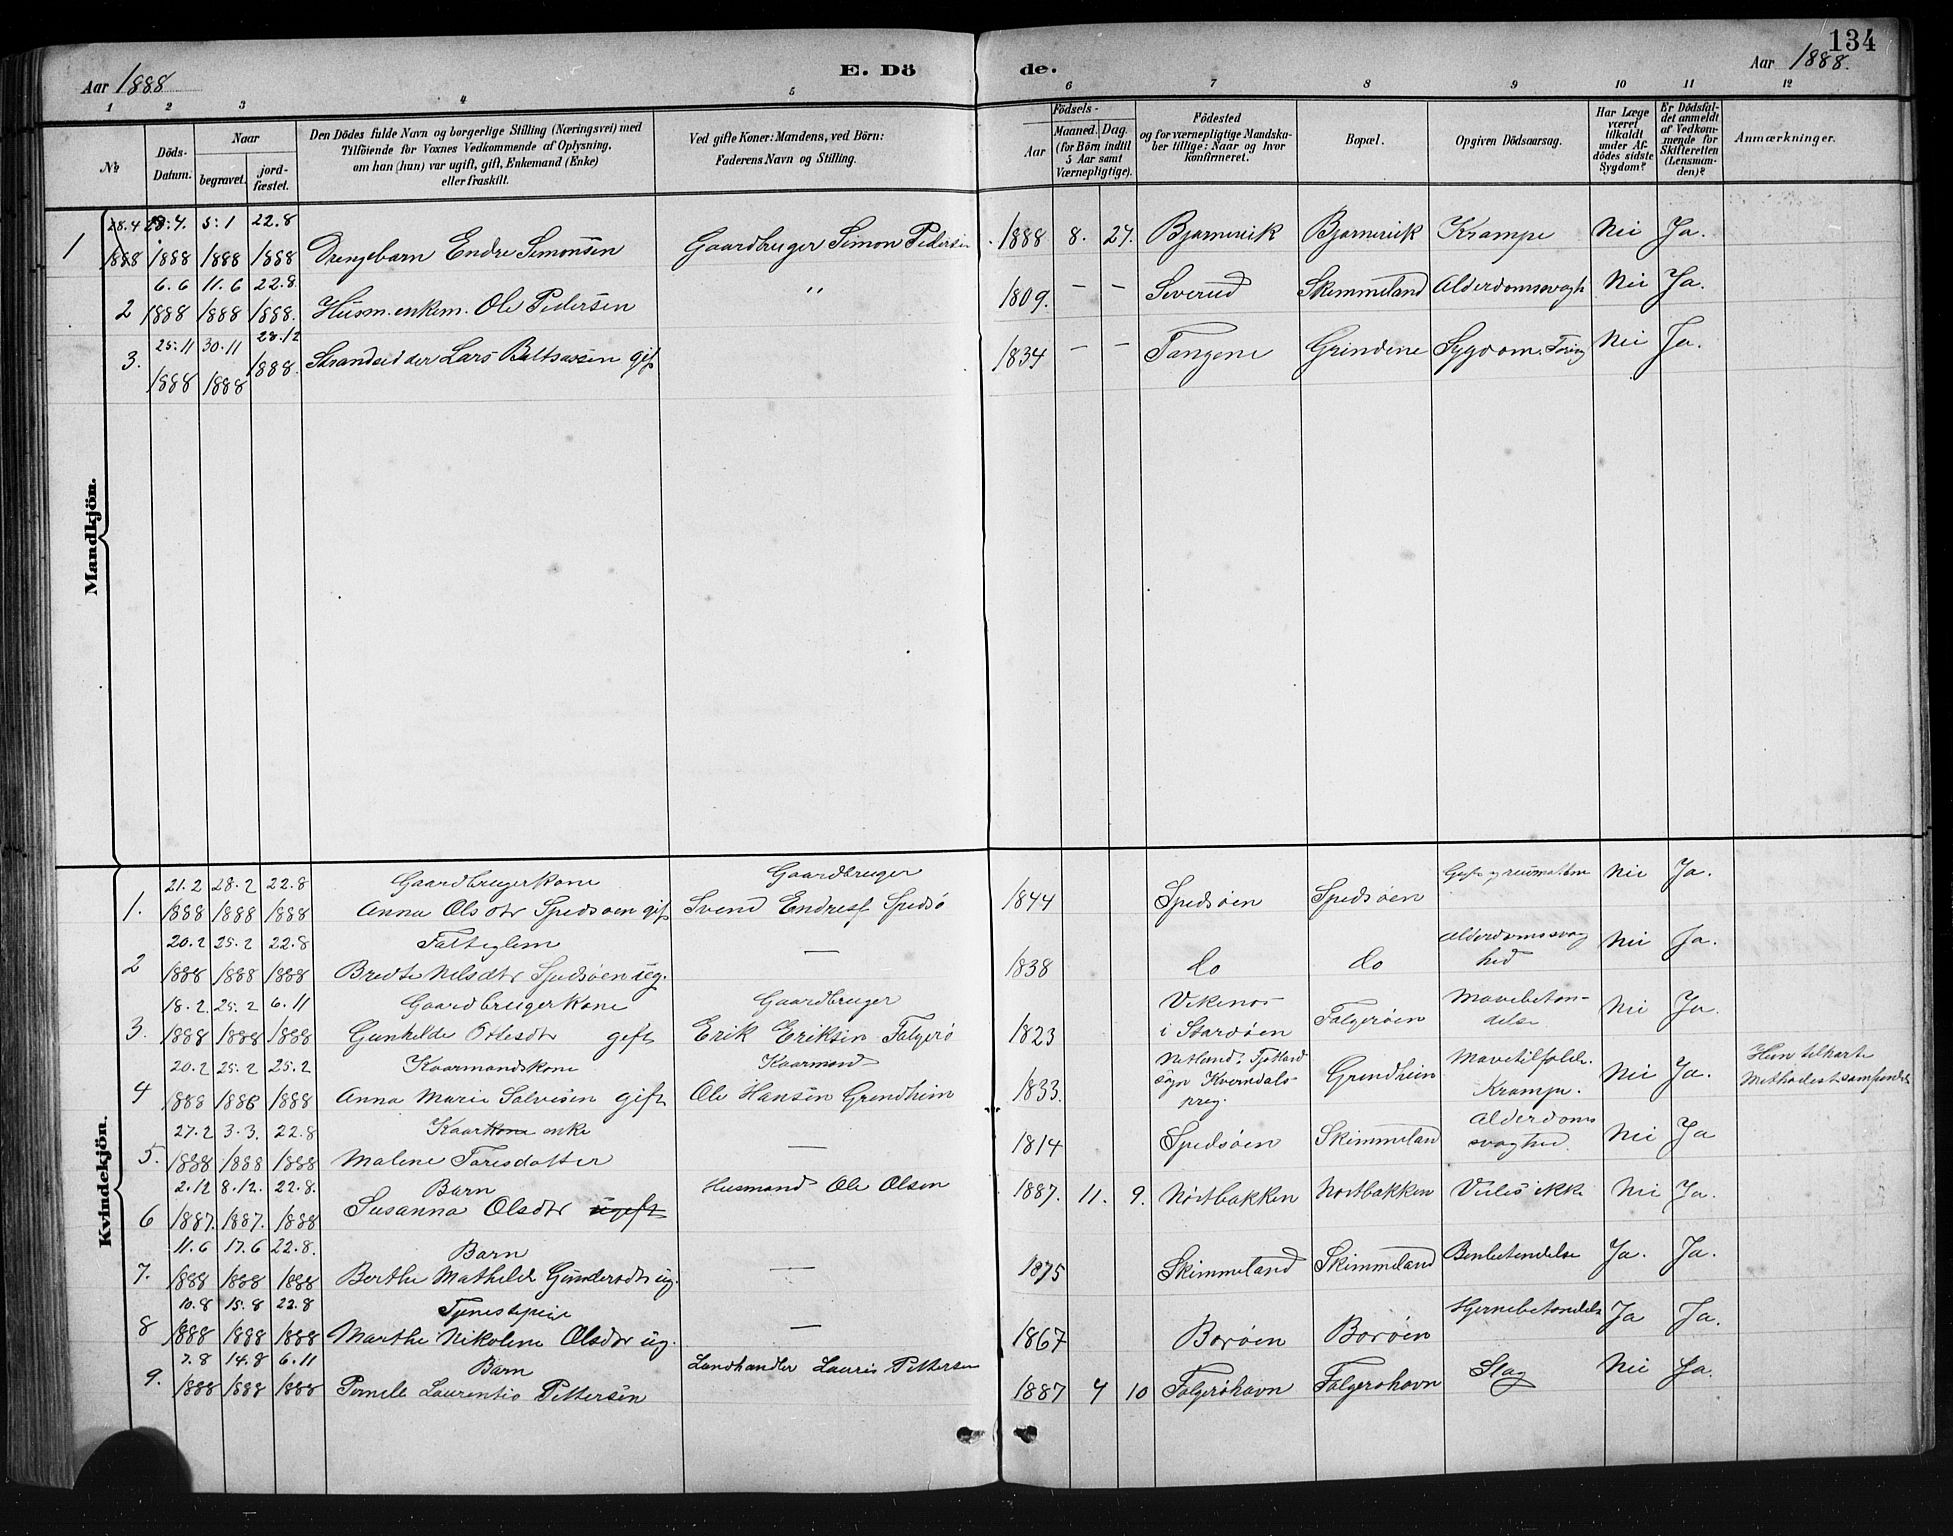 134
Aar 1888
E. Dö
de.
Aar 1888.
1 2 3 4 5 6 7 8 9 10 11 12
№
Döds-Datum.
Naar
begravet.
jord-fæstet.
Den Dödes fulde Navn og borgerlige Stilling (Næringsvei) med
Tilföiende for Voxnes Vedkommende af Oplysning,
om han (hun) var ugift, gift, Enkemand (Enke)
eller fraskilt.
Ved gifte Koner: Mandens, ved Börn:
Faderens Navn og Stilling.
Födsels-
Aar
Maaned. Dag.
(for Börn indtil
5 Aar samt
Værnepligtige).
Födested
og for værnepligtige Mandska-
ber tillige: Naar og hvor
konfirmeret.
Bopæl.
Opgiven Dödsaarsag.
Har Læge
været
tilkaldt
under Af-
dödes sidste
Sygdom?
Er Dödsfal-
det anmeldt
af Vedkom-
mende for
Skifteretten
(Lensman-
den)?
Anmærkninger.
Mandkjön.
28.4 28.4. 5.1 22.8
1 1888 1888 1888 1888 Drengebarn Endre Simonsen Gaardbruger Simon Pedersen 1888 8. 27. Bjørnevik Bjørnevik Krampe Nei Ja.
6.6 11.6 22.8
2 1888 1888 1888. Husm. enkem. Ole Pedersen " 1809. – – Severud Skimmeland Alderdomssvagh Nei Ja.
25.11 30.11 28.12
3. 1888 1888 1888. Strandsidder Lars Baltsassen gift 1834 – – Tangene Grindene Sygdom. Tæring Nei Ja.
Kvindekjön.
21.2 28.2 22.8 Gaardbrugerkone Gaardbruger
1. 1888 1888 1888 Anna Olsdtr Spedsøen gift Svend Endresf Spedsø 1844 Spedsøen Spedsøen Nei Ja.
20.2 25.2 22.8 Fattiglem
2 1888 1888 1888 Bredte Nilsdtr Spedsøen ug. — 1838 do do Alderdomssvag
hed Nei Ja.
18.2 25.2 6.11 Gaardbrugerkone Gaardbruger
3. 1888 1888 1888 Gunhilde Ottesdtr gift Erik Eriksen Folgerø 1823 Vikenes
i Stordøen Folgerøen Mavebeten-
delse Nei Ja.
20.2 25.2 25.2 Kaarmandskone Kaarmand
4 1888 1888 1888 Anna Marie Salvesen gift Ole Hansen Grendheim 1833. Netland, Fjotland
sogn Kverndals-
preg. Grendheim Mavetilfælde.
Krampe. Nei Ja. Hun tilhørte
Methodistsamfundet
27.2 3.3. 22.8 Kaarkone enke
5. 1888 1888 1888 Malene Toresdatter — 1814 Spedsøen Skimmeland Alderdoms
svaghed Nei Ja
2.12 8.12. 22.8. Barn Husmand Ole Olsen
6 1887. 1887. 1888 Susanna Olsdtr ugift 1887. 11. 9. Nortbakken Nortbakken Vides ikke Nei Ja.
11.6 17.6 22.8. Barn
7. 1888 1888 1888 Berthe Mathilde Gundersdtr ug. — 1875 Skimmeland Skimmeland Benbetendelse Ja. Ja.
10.8 15.8 22.8 Tjenestepeige
8 1888 1888 1888 Marthe Nikoline Olsdtr ug. — 1867 Borøen Borøen Hjernebetendelse Ja Ja.
7.8 14.8 6.11 Barn Landhandler Lauris Pettersen
9. 1888 1888 1888 Pernele Laurentio Pettersen 1887 4 10 Folgerøhavn Folgerøhavn Slag Nei Ja.